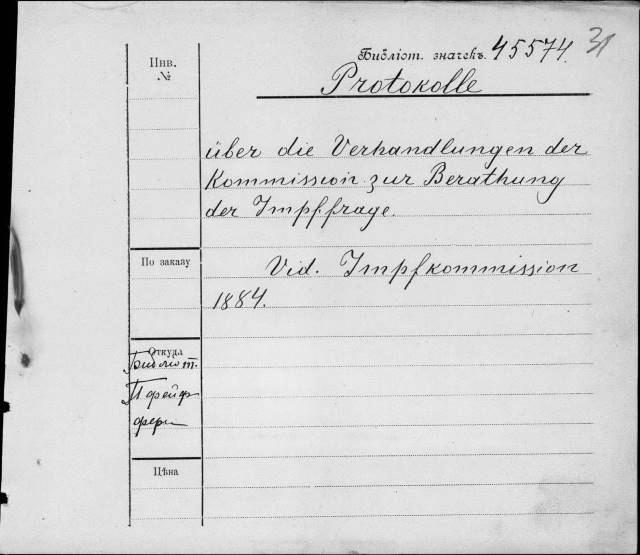 Инв.
№
Библіот. значекъ. 45574.
31
Protokolle
über die Verhandlungen der
Kommission zur Berathung
der Impffrage.
По заказу
Vid. Impfkommission
1884.
Откуда
Библіот.
Пфейф
фери
Цѣна